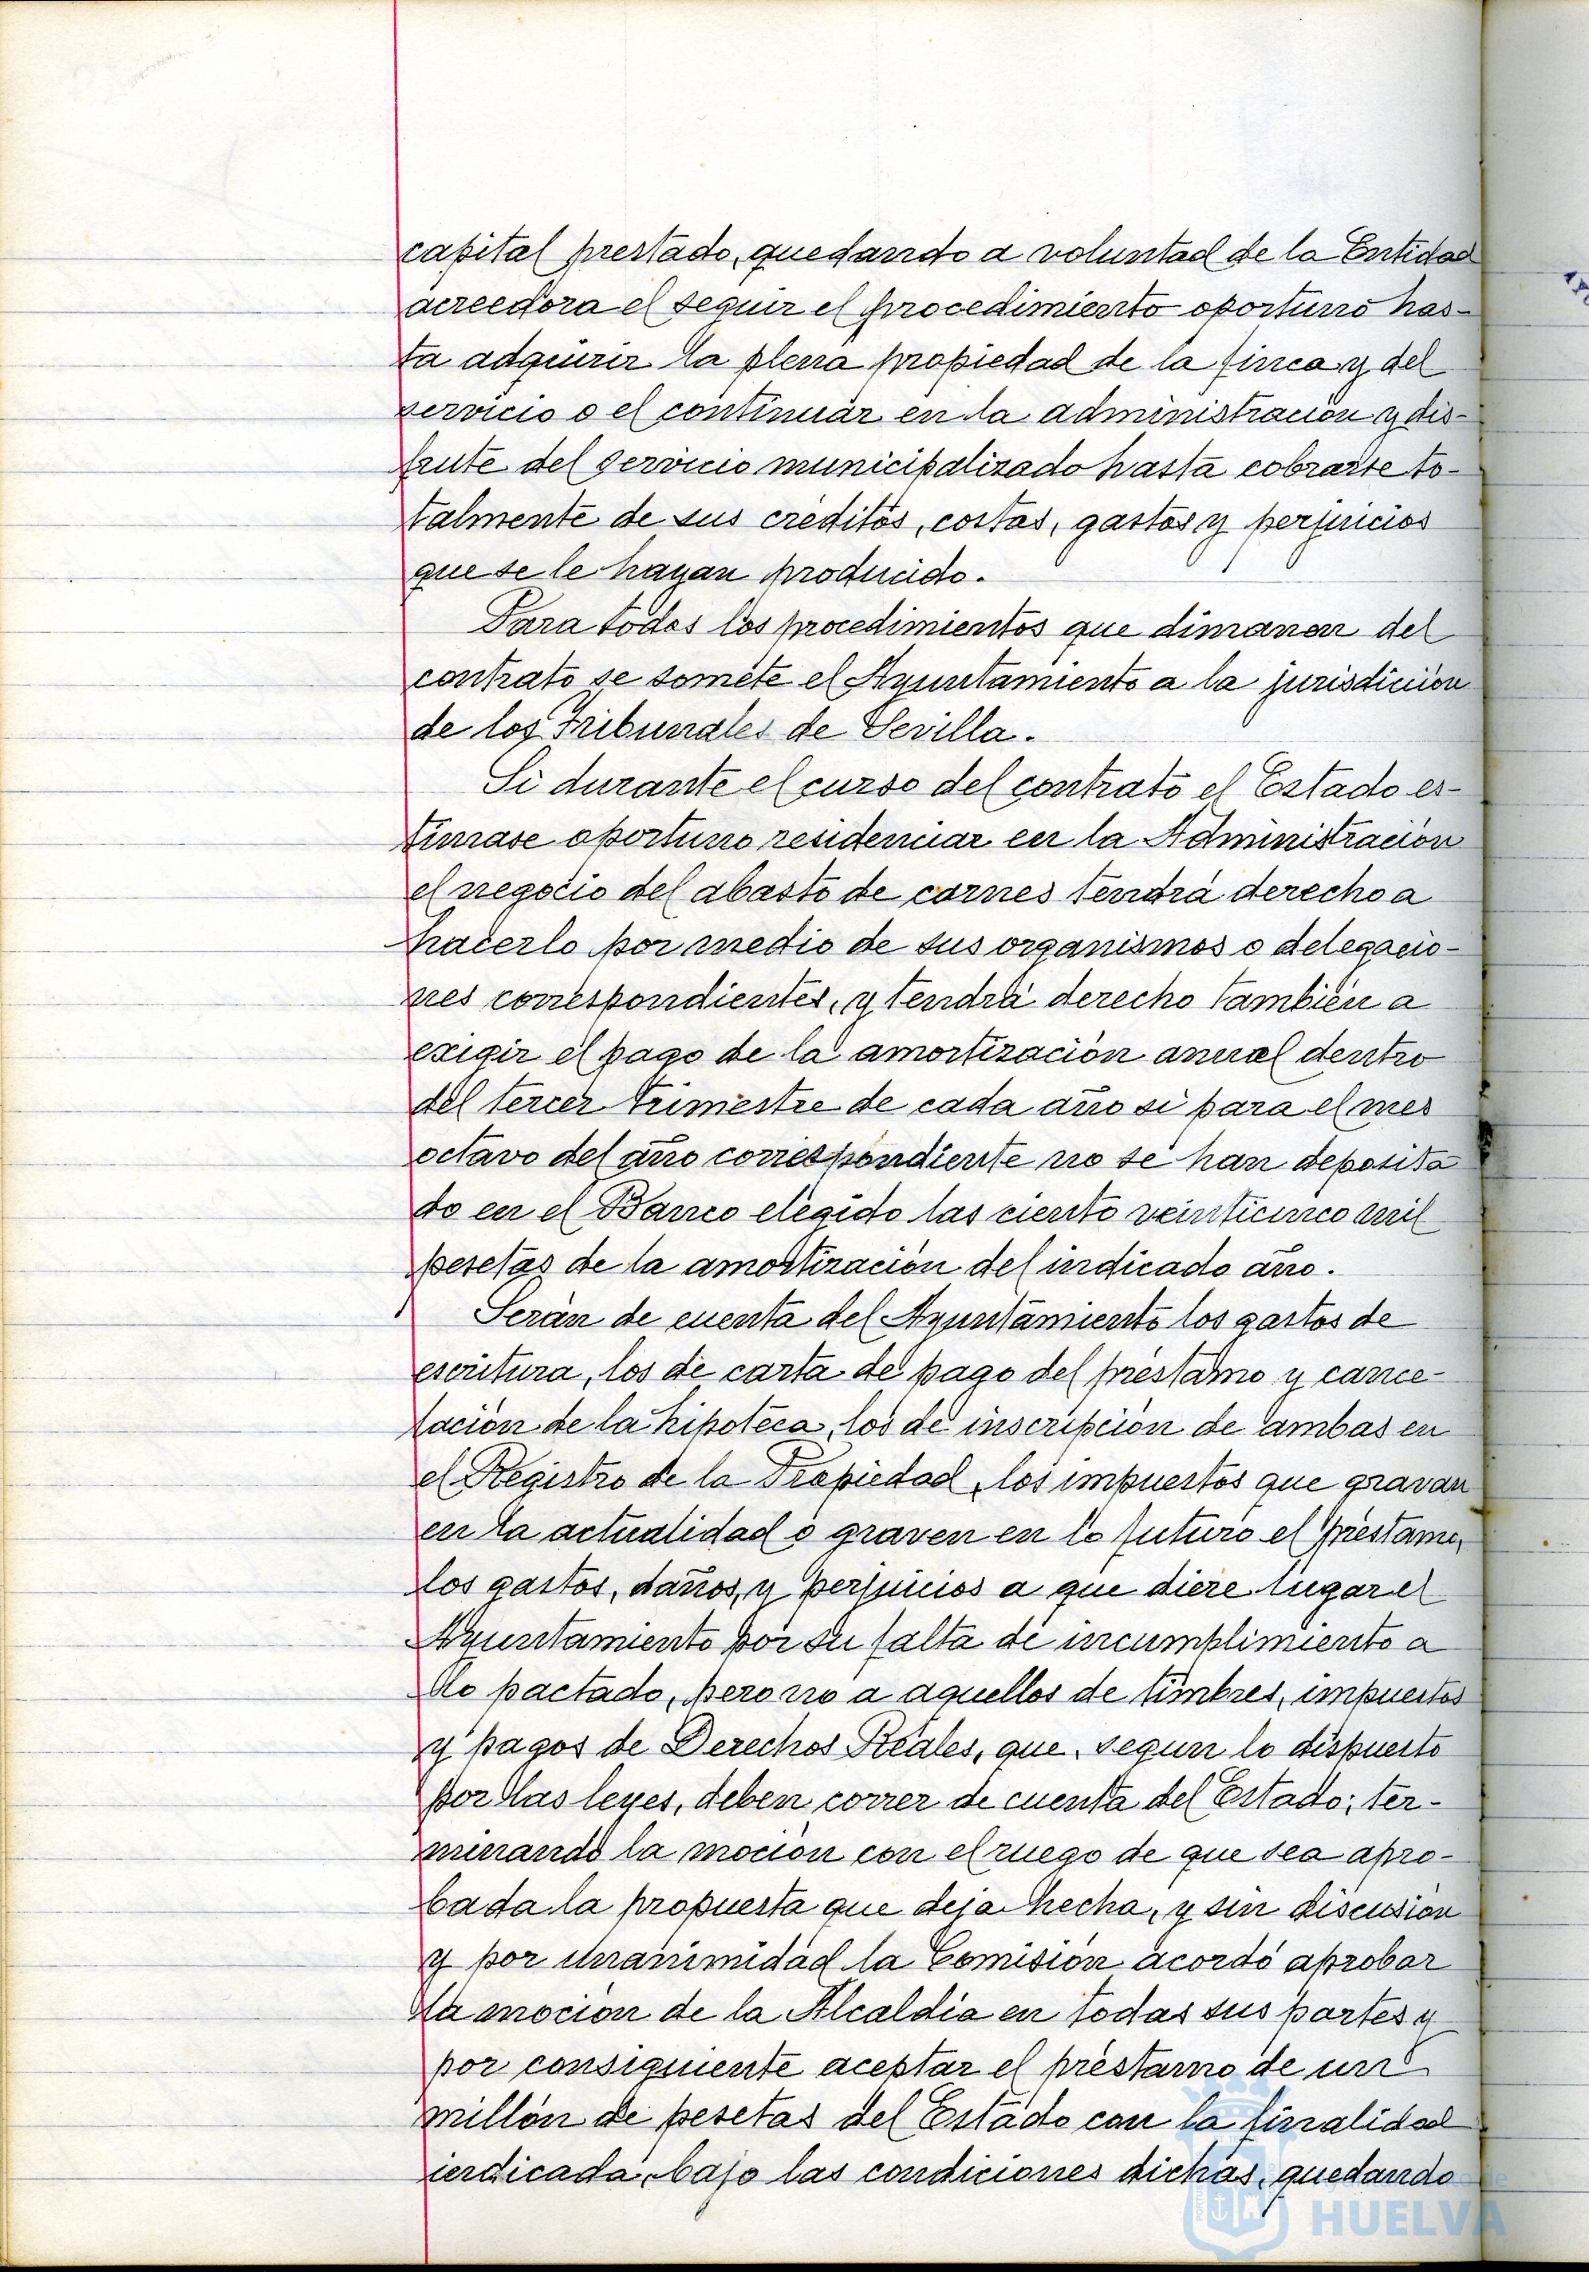 capital prestado, quedando a voluntad de la Entidad
acreedora el seguir el procedimiento oportuno has-
ta adquirir la plena propiedad de la finca y del
servicio o el continuar en la administración y dis-
frute del servicio municipalizado hasta cobrarse to-
talmente de sus créditos, costas, gastos y perjuicios
que se le hayan producido.
Para todos los procedimientos que dimanan del
contrato se somete el Ayuntamiento a la jurisdicción
de los Tribunales de Sevilla.
Si durante el curso del contrato el Estado es-
timase oportuno residenciar en la Administración
el negocio del abasto de carnes tendrá derecho a
hacerlo por medio de sus organismos o delegacio-
nes correspondientes, y tendrá derecho también a
exigir el pago de la amortización anual dentro
del tercer trimestre de cada año si para el mes
octavo del año correspondiente no se han deposita
do en el Banco elegido las ciento veinticinco mil
pesetas de la amortización del indicado año.
Serán de cuenta del Ayuntamiento los gastos de
escritura, los de carta de pago del préstamo y cance-
lación de la hipoteca, los de inscripción de ambas en
el Registro de la Propiedad, los impuestos que gravan
en la actualidad o graven en lo futuro el préstamo,
los gastos, daños, y perjuicios a que diere lugar el
Ayuntamiento por su falta de incumplimiento a
lo pactado, pero no a aquellos de timbres, impuestos
y pagos de Derechos Reales, que, segun lo dispuesto
por las leyes, deben correr de cuenta del Estado; ter-
minando la moción con el ruego de que sea apro-
bada la propuesta que deja hecha, y sin discusión
y por unanimidad la Comisión acordó aprobar
la moción de la Alcaldía en todas sus partes y
por consiguiente aceptar el préstamo de un
millón de pesetas del Estado con la finalidad
indicada, bajo las condiciones dichas, quedando
HUELVA